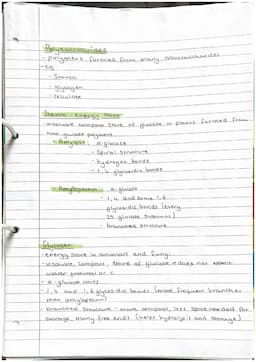 Polysaccharides
- polymers formed from many monosaccharides
- eg
- Starch
- Glycogen
- Cellulose
Starch - Energy Store
- insoluble compact store of glucose in plants formed from
two glucose polymers
- Amylose : α glucose
- spiral structure
- hydrogen bonds
- 1,4 glycosidic bonds
- Amylopectin : α glucose
- 1,4 and some 1,6
glycosidic bonds (every
25 glucose subunits)
- branched structure
Glycogen
- energy store in animals and fungi
- insoluble, compact, store of glucose does not affect
water potential
- α glucose units
- 1,4 and 1,6 glycosidic bonds (more frequent branches
than amylopectin)
- branched structure - more compact, less space needed for
storage, many free ends (helps hydrolysis and storage)